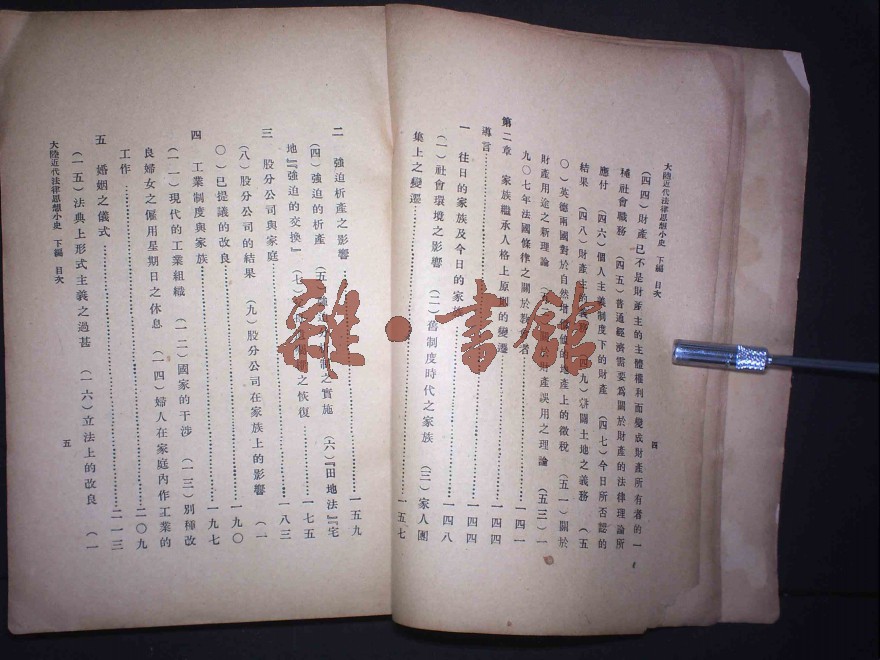 大陸近代法律思想小史 下編 目次
四
(四四)財產已不是財產主的主體權利而變成財產所有者的一
種社會職務 (四五)普通經濟需要爲關於財產的法律理論所
應付 (四六)個人主義制度下的財產 (四七)今日所否認的
結果 (四八)財產主的義務 (四九)耕闢土地之義務 (五
〇)英德兩國對於自然增加價值的地產上的徵稅 (五一)關於
財產用途之新理論 財產誤用之理論 (五三)一
九〇七年法國條律之關於教 者 一四一
第二章 家族繼承人格上原則的變遷 一四四
導言 一四四
一 往日的家族及今日的家 一四八
(一)社會環境之影響 (二)舊制度時代之家族 (三)家人團
集上之變遷 一五七
二 強迫析產之影響 一五九
(四)強迫的析產 (五) 制之實施 (六)『田地法』『宅
地』『強迫的交換』 (七) 之恢復 一七五
三 股分公司與家庭 一八三
(八)股分公司的結果 (九)股分公司在家族上的影響 (一
〇)已提議的改良 一九〇
四 工業制度與家族 一九七
(一一)現代的工業組織 (一二)國家的干涉 (一三)別種改
良婦女之僱用星期日之休息 (一四)婦人在家庭內作工業的
工作 二〇九
五 婚姻之儀式 二一三
(一五)法典上形式主義之過甚 (一六)立法上的改良 (一
大陸近代法律思想小史 下編 目次
五
雜·書館